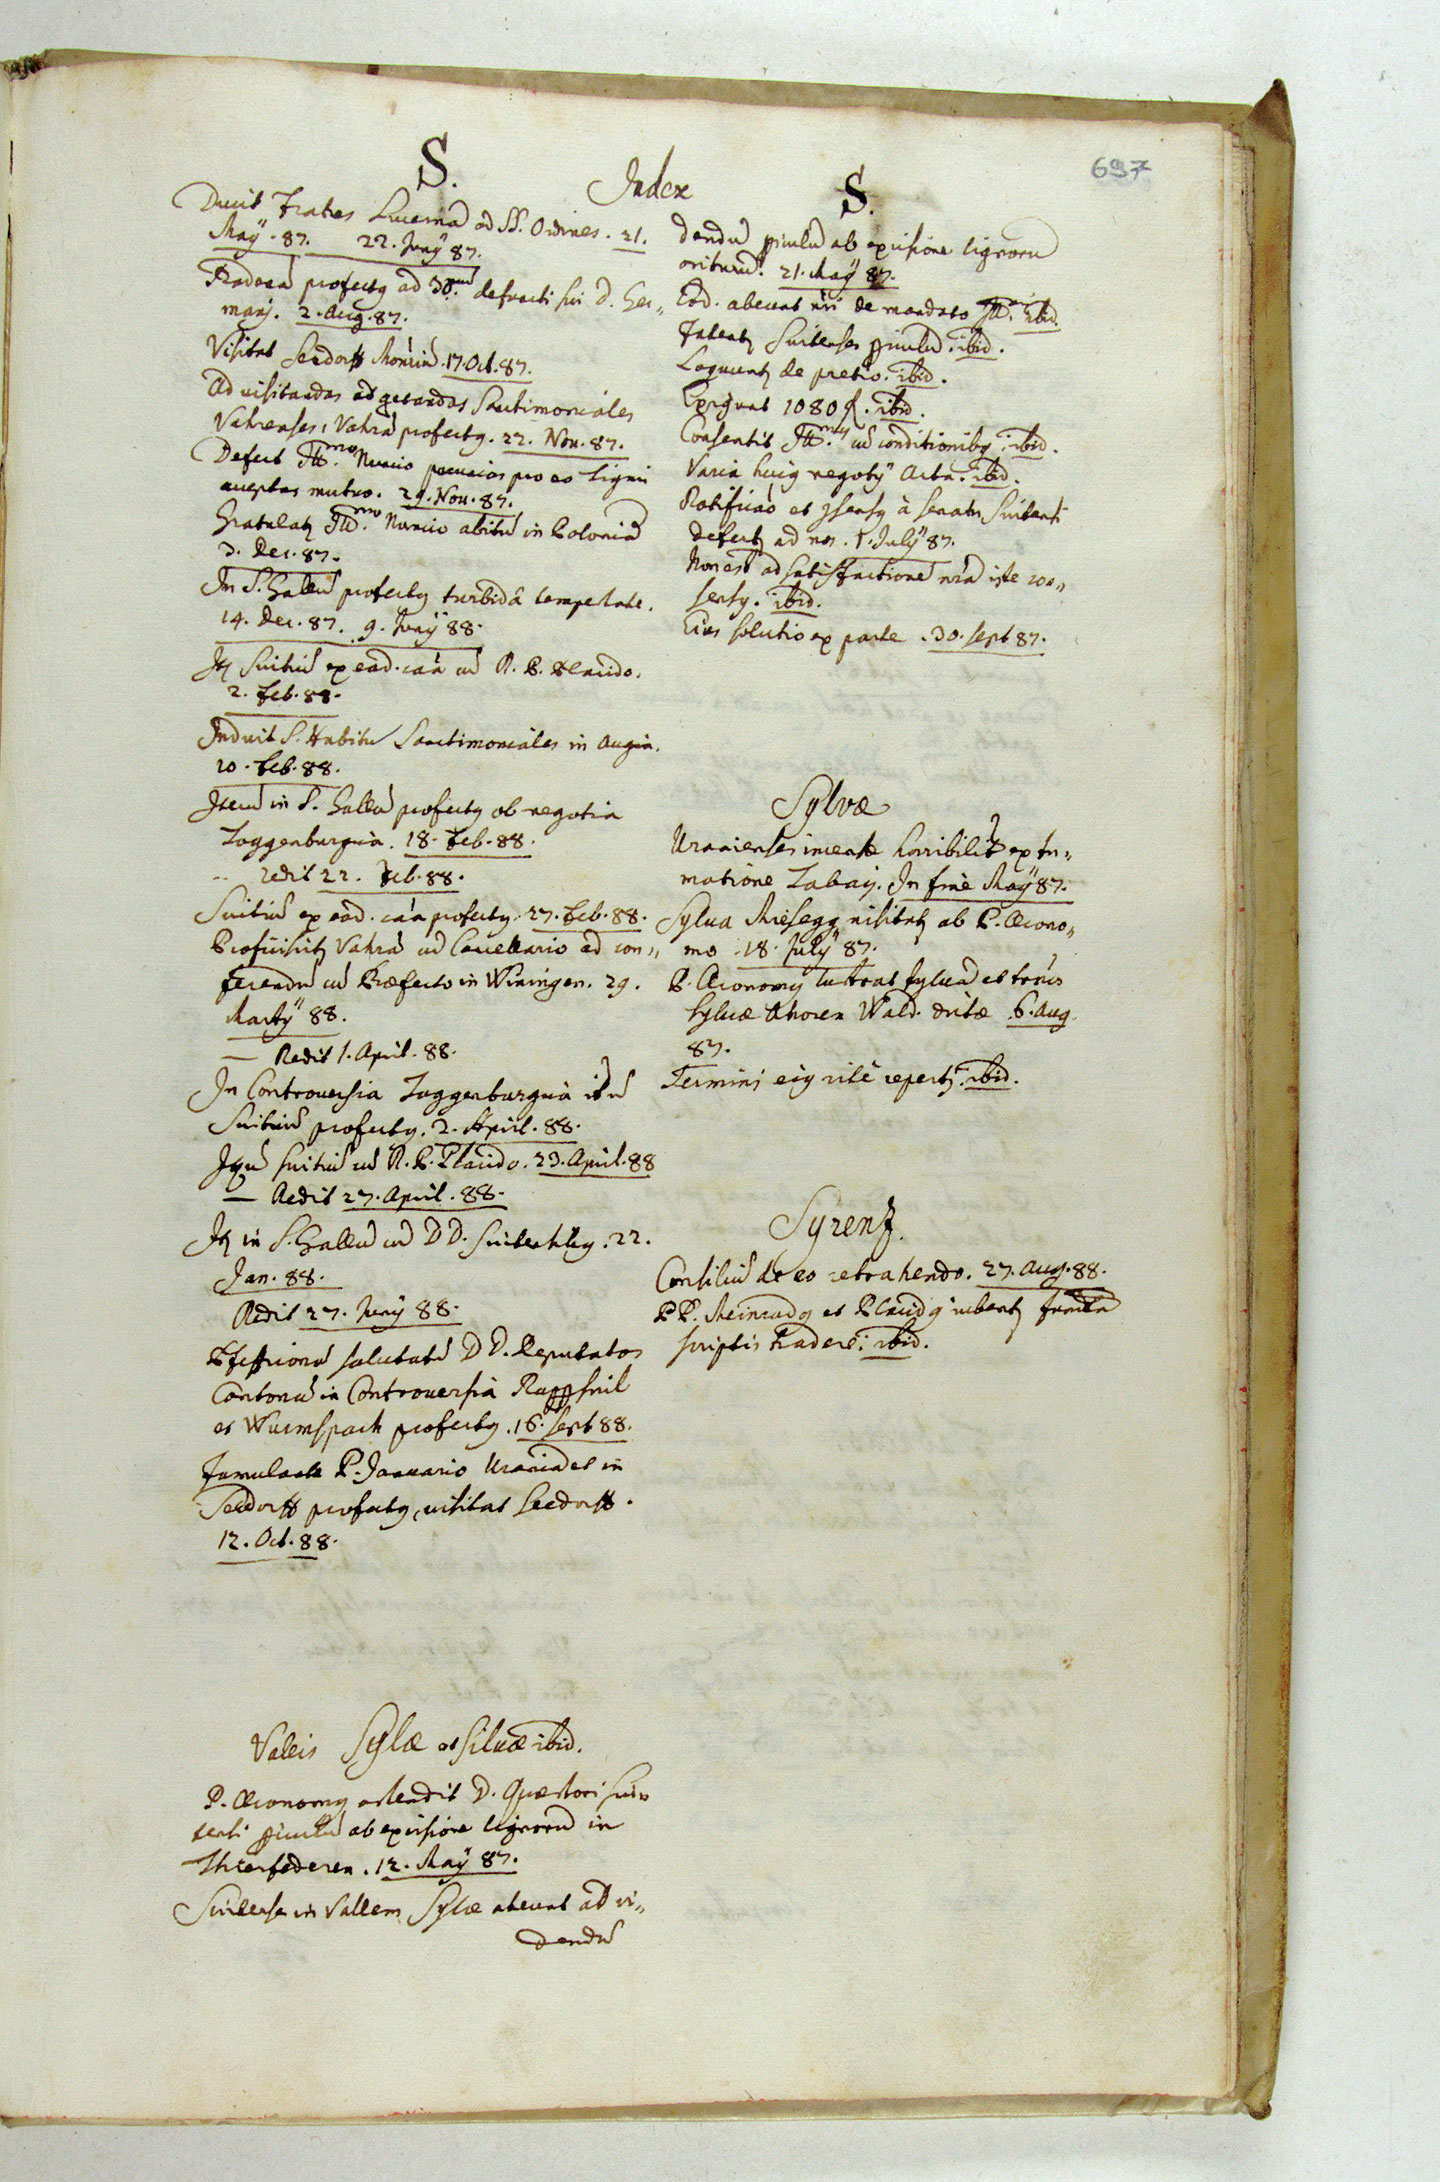 697
Index
S.
Ducit Fratres Lucernā ad SS. Ordines. 21.
Maÿ. 87. 22. Junÿ 87.
profectq ad 30.um defuncti sui D. Ger„
manj. 2. Aug. 87.
Visitat Seedorff Monriū. 17. Oct. 87.
Ad visitandas Sanctimoniales
Vahrenses, Vahrā profectq. 22. Nov. 87.
Defert Ill.mo Nuncio pecunias pro eo Ligni
acceptas mutuo. 29. Nov. 87.
Gratulatʒ Ill.mo Nuncio abitū in Poloniā
3. Dec. 87.
In S. Gallū profectq turbidâ tempestate.
14. Dec. 87. 9. Junÿ 88.
Itʒ Suitiū ex ead. caā cū R. P. Placido.
2. Feb. 88.
Induit S. Habitu Sanctimoniales in Augia.
20. Feb. 88.
Item in S. Gallū profectq ob negotia
Toggenburgica. 18. Feb. 88.
-- redit 22. Feb. 88.
Suitiū ex ead. caā profectq. 27. Feb. 88.
Proficiscitʒ Vahrā cū Cancellario ad con„
ferendū cū Præfecto in Winingen. 29.
Martÿ 88.
— Redit 1. April. 88.
In Controversia Toggenburgica itʒū
Suitiū profectq. 2. April. 88.
Suitiū cū R. P. Placido. 23. April. 88
— Redit 27. April. 88.
Itʒ in S. Gallū cū DD. Suitensibq. 22.
Jan. 88.
Redit 27. Junÿ 88.
Pfefficonā salutatū DD. Deputatos
Cantonū in Controversia Rappschuil
et Wurmspach profectq. 16. Sept 88.
Famulante P. Januario Uraniā et in
Seedorff profectq, visitat Seedorff.
12. Oct. 88.
Vallis Sylæ et Silvæ ibid.
P. Œconomq ostendit D. Quæstori Sui„
tensi piculū ab excisione lignorū in
12. Maÿ 87.
Suitenses in Vallem Sylæ abeunt ad vi„
dendū
S.
dendū piculū ab excisione lignorū
oriturū. 21. Maÿ 87.
Eod. abeunt nri de mandato Ill. ibid.
Fatentʒ Suitenses piculū. ibid.
Loquuntʒ de pretio. ibid.
Exigunt 1080 fl. ibid.
Consentit Ill.mq cū conditionibq. ibid.
Varia huiq negotÿ Acta. ibid.
Ratificaō et 9sensq à senatu Suitensi
defertʒ ad nos. 1. Julÿ 87.
Non est ad satisfactionē nrā iste con„
sensq. ibid.
Eius solutio ex parte. 30. Sept 87.
Sylvæ
Uranienses incensæ horribilitʒ ex fu„
matione Tabaci. In fine Maÿ 87.
Sylva Miesegg visitatʒ ab P. Œcono„
mo. 18. Julÿ 87.
P. Œconomq lustrat sylvā et trnos
Sylvæ Ahoren Wald. dictæ. 6. Aug.
87.
Terminj eiq rite repertj. ibid.
Syrenʒ.
Consiliū de eo retrahendo. 27. Aug. 88.
PP. Meinradq et Placidq iubentʒ
scriptis tradere. ibid.